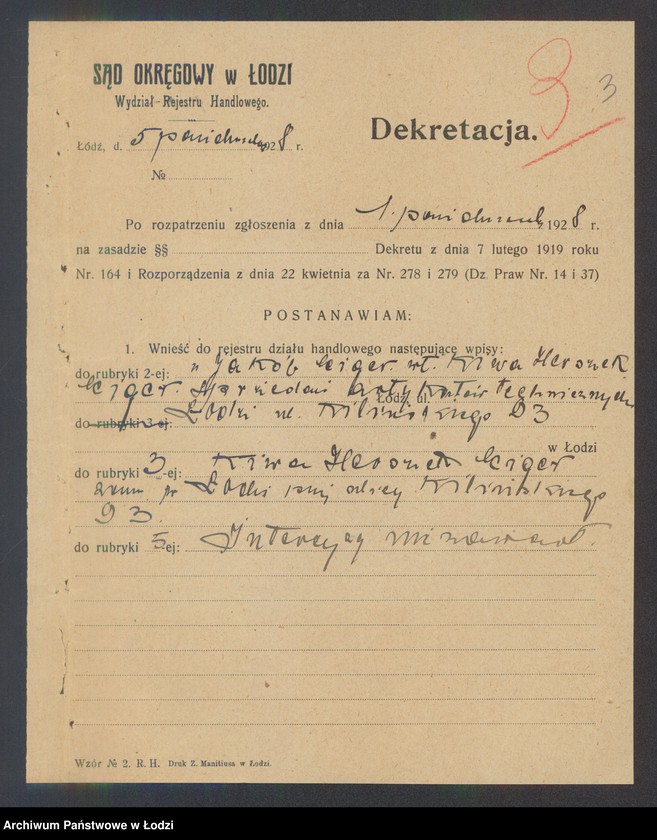 SĄD OKRĘGOWY w ŁODZI
Wydział Rejestru Handlowego.
3 3
Dekretacja.
Łódź, d. 5 października 1928 r.
№
Po rozpatrzeniu zgłoszenia z dnia 1 października 1928 r.
na zasadzie §§ Dekretu z dnia 7 lutego 1919 roku
Nr. 164 i Rozporządzenia z dnia 22 kwietnia za Nr. 278 i 279 (Dz. Praw Nr. 14 i 37)
POSTANAWIAM:
1. Wnieść do rejestru działu handlowego następujące wpisy:
do rubryki 2-ej: „Jakób Eiger wł. Kiwa Herszek
Eiger. Sprzedaż artykułów technicznych
Łódź, ul.
do rubryki 3-ej: Łódź ul. Kilińskiego 93
w Łodzi
do rubryki 3-ej: Kiwa Herszek Eiger
zam w Łodzi przy ulicy Kilińskiego
93.
do rubryki 5-ej: Intercyzy nie zawarł.
Wzór № 2. R. H. Druk Z. Manitiusa w Łodzi.
Archiwum Państwowe w Łodzi